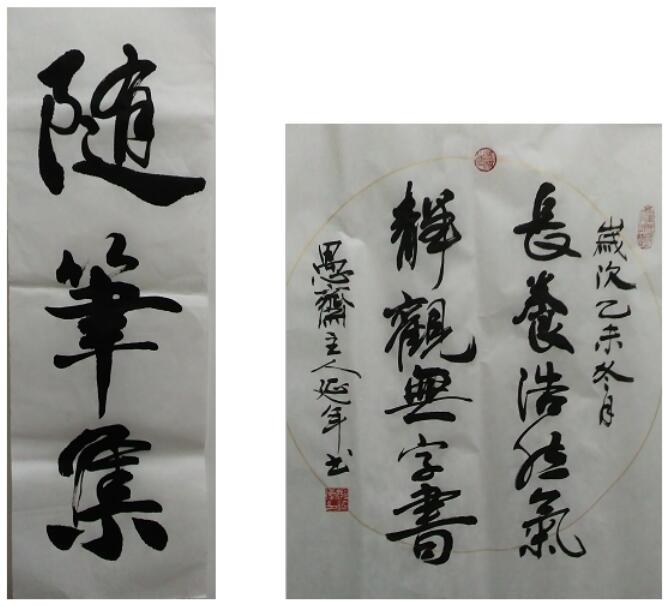 随筆集
歲次乙未冬月
長養浩然氣
靜觀無字書
愚齋主人延年书